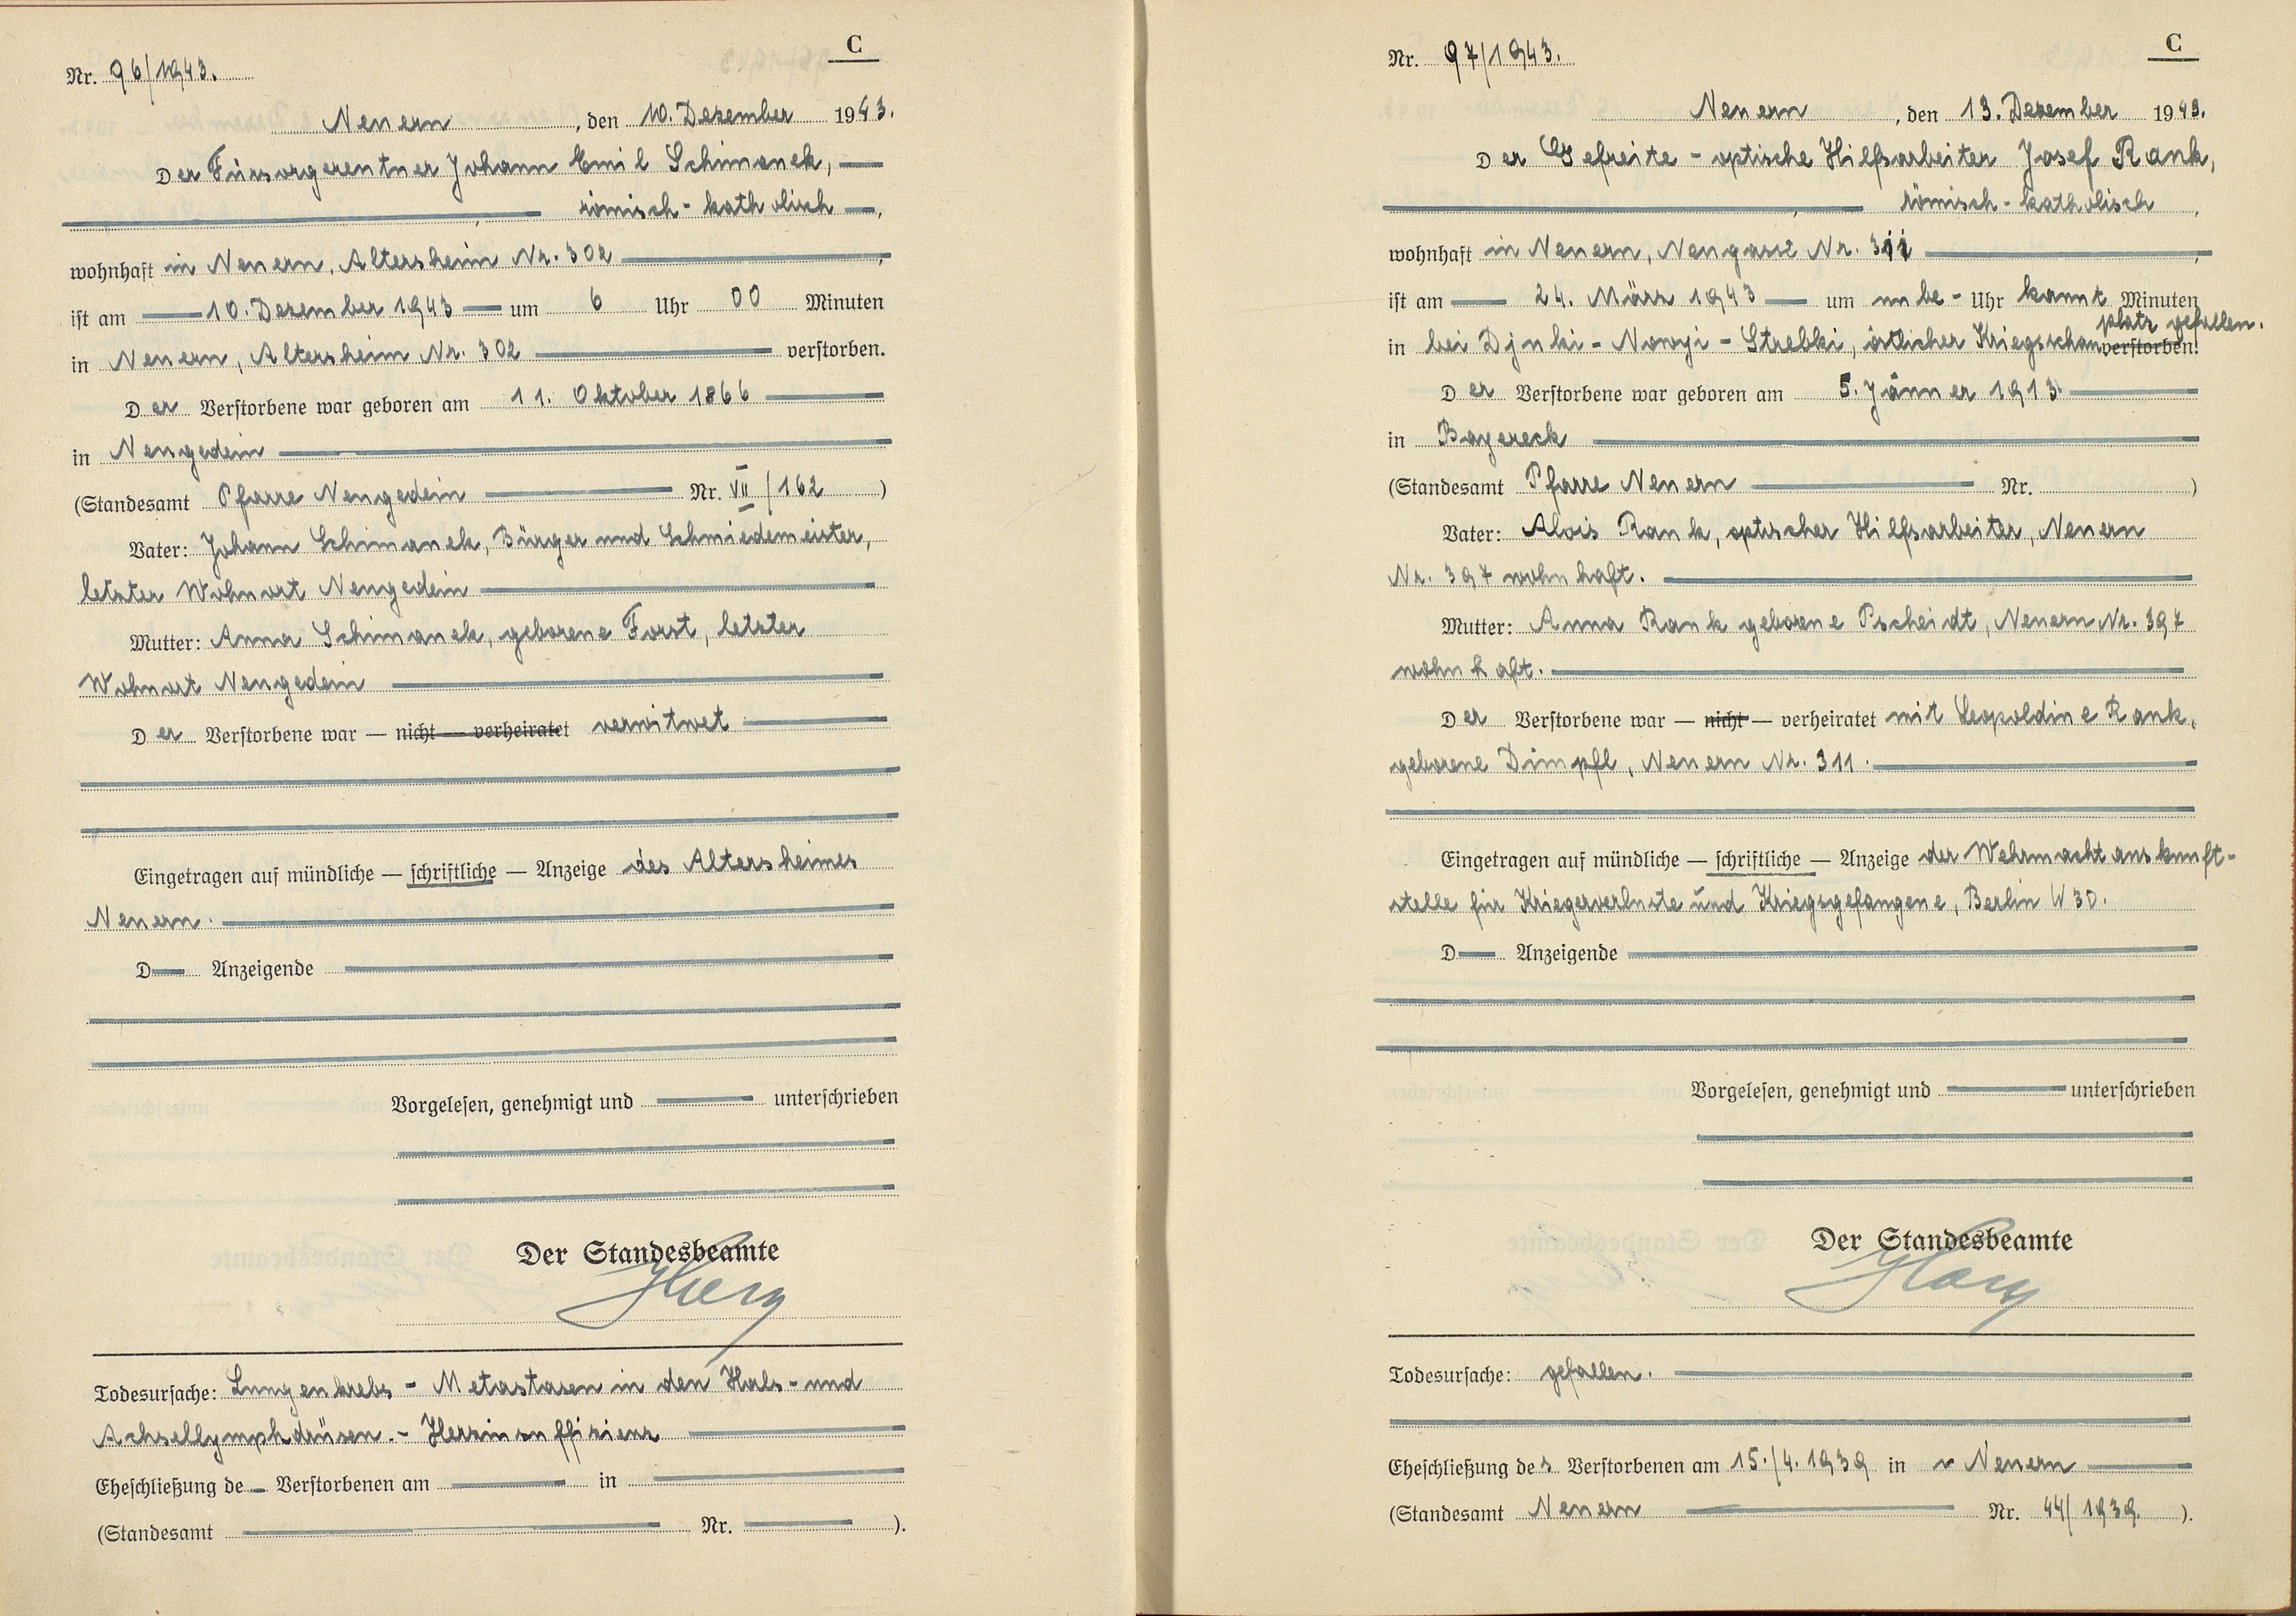 C
Nr. 96/1943.
Neuern, den 10. Dezember 1943.
Der Fürsorgerentner Johann Emil Schimanek,
römisch-katholisch,
wohnhaft in Neuern, Altersheim Nr. 302
ist am 10. Dezember 1943 um 6 Uhr 00 Minuten
in Neuern, Altersheim Nr. 302 verstorben.
Der Verstorbene war geboren am 11. Oktober 1866
in Neugedein
(Standesamt Pfarre Neugedein Nr. VII/162)
Vater: Johann Schimanek, Bürger und Schmiedemeister,
letzter Wohnort Neugedein
Mutter: Anna Schimanek, geborene Forst, letzter
Wohnort Neugedein
Der Verstorbene war — nicht — verheiratet verwitwet
Eingetragen auf mündliche — schriftliche — Anzeige des Altersheimes
Neuern.
D Anzeigende
Vorgelesen, genehmigt und unterschrieben
Der Standesbeamte
Todesursache: Lungenkrebs - Metastasen in den Hals- und
Achsellymphdrüsen. - Herzinsuffizienz
Eheschließung de Verstorbenen am in
(Standesamt Nr. ).
C
Nr. 97/1943.
Neuern, den 13. Dezember 1943.
Der Gefreite - optische Hilfsarbeiter Josef Rank,
römisch-katholisch,
wohnhaft in Neuern, Neugasse Nr. 311
ist am 24. März 1943 um unbe- Uhr kannt Minuten
platz gefallen.
in bei Djuki-Nowyi-Strebki, östlicher Kriegsschau verstorben.
Der Verstorbene war geboren am 5. Jänner 1913
in Bayereck
(Standesamt Pfarre Neuern Nr. )
Vater: Alois Rank, optischer Hilfsarbeiter, Neuern
Nr. 397 wohnhaft.
Mutter: Anna Rank geborene Pscheidt, Neuern Nr. 397
wohnhaft.
Der Verstorbene war — nicht — verheiratet mit Leopoldine Rank,
geborene Dimpfl, Neuern Nr. 311.
Eingetragen auf mündliche — schriftliche — Anzeige der Wehrmachtauskunft-
stelle für Kriegerverluste und Kriegsgefangene, Berlin W 30.
D Anzeigende
Vorgelesen, genehmigt und unterschrieben
Der Standesbeamte
Todesursache: gefallen.
Eheschließung des Verstorbenen am 15./4. 1939 in Neuern
(Standesamt Neuern Nr. 44/1939.).